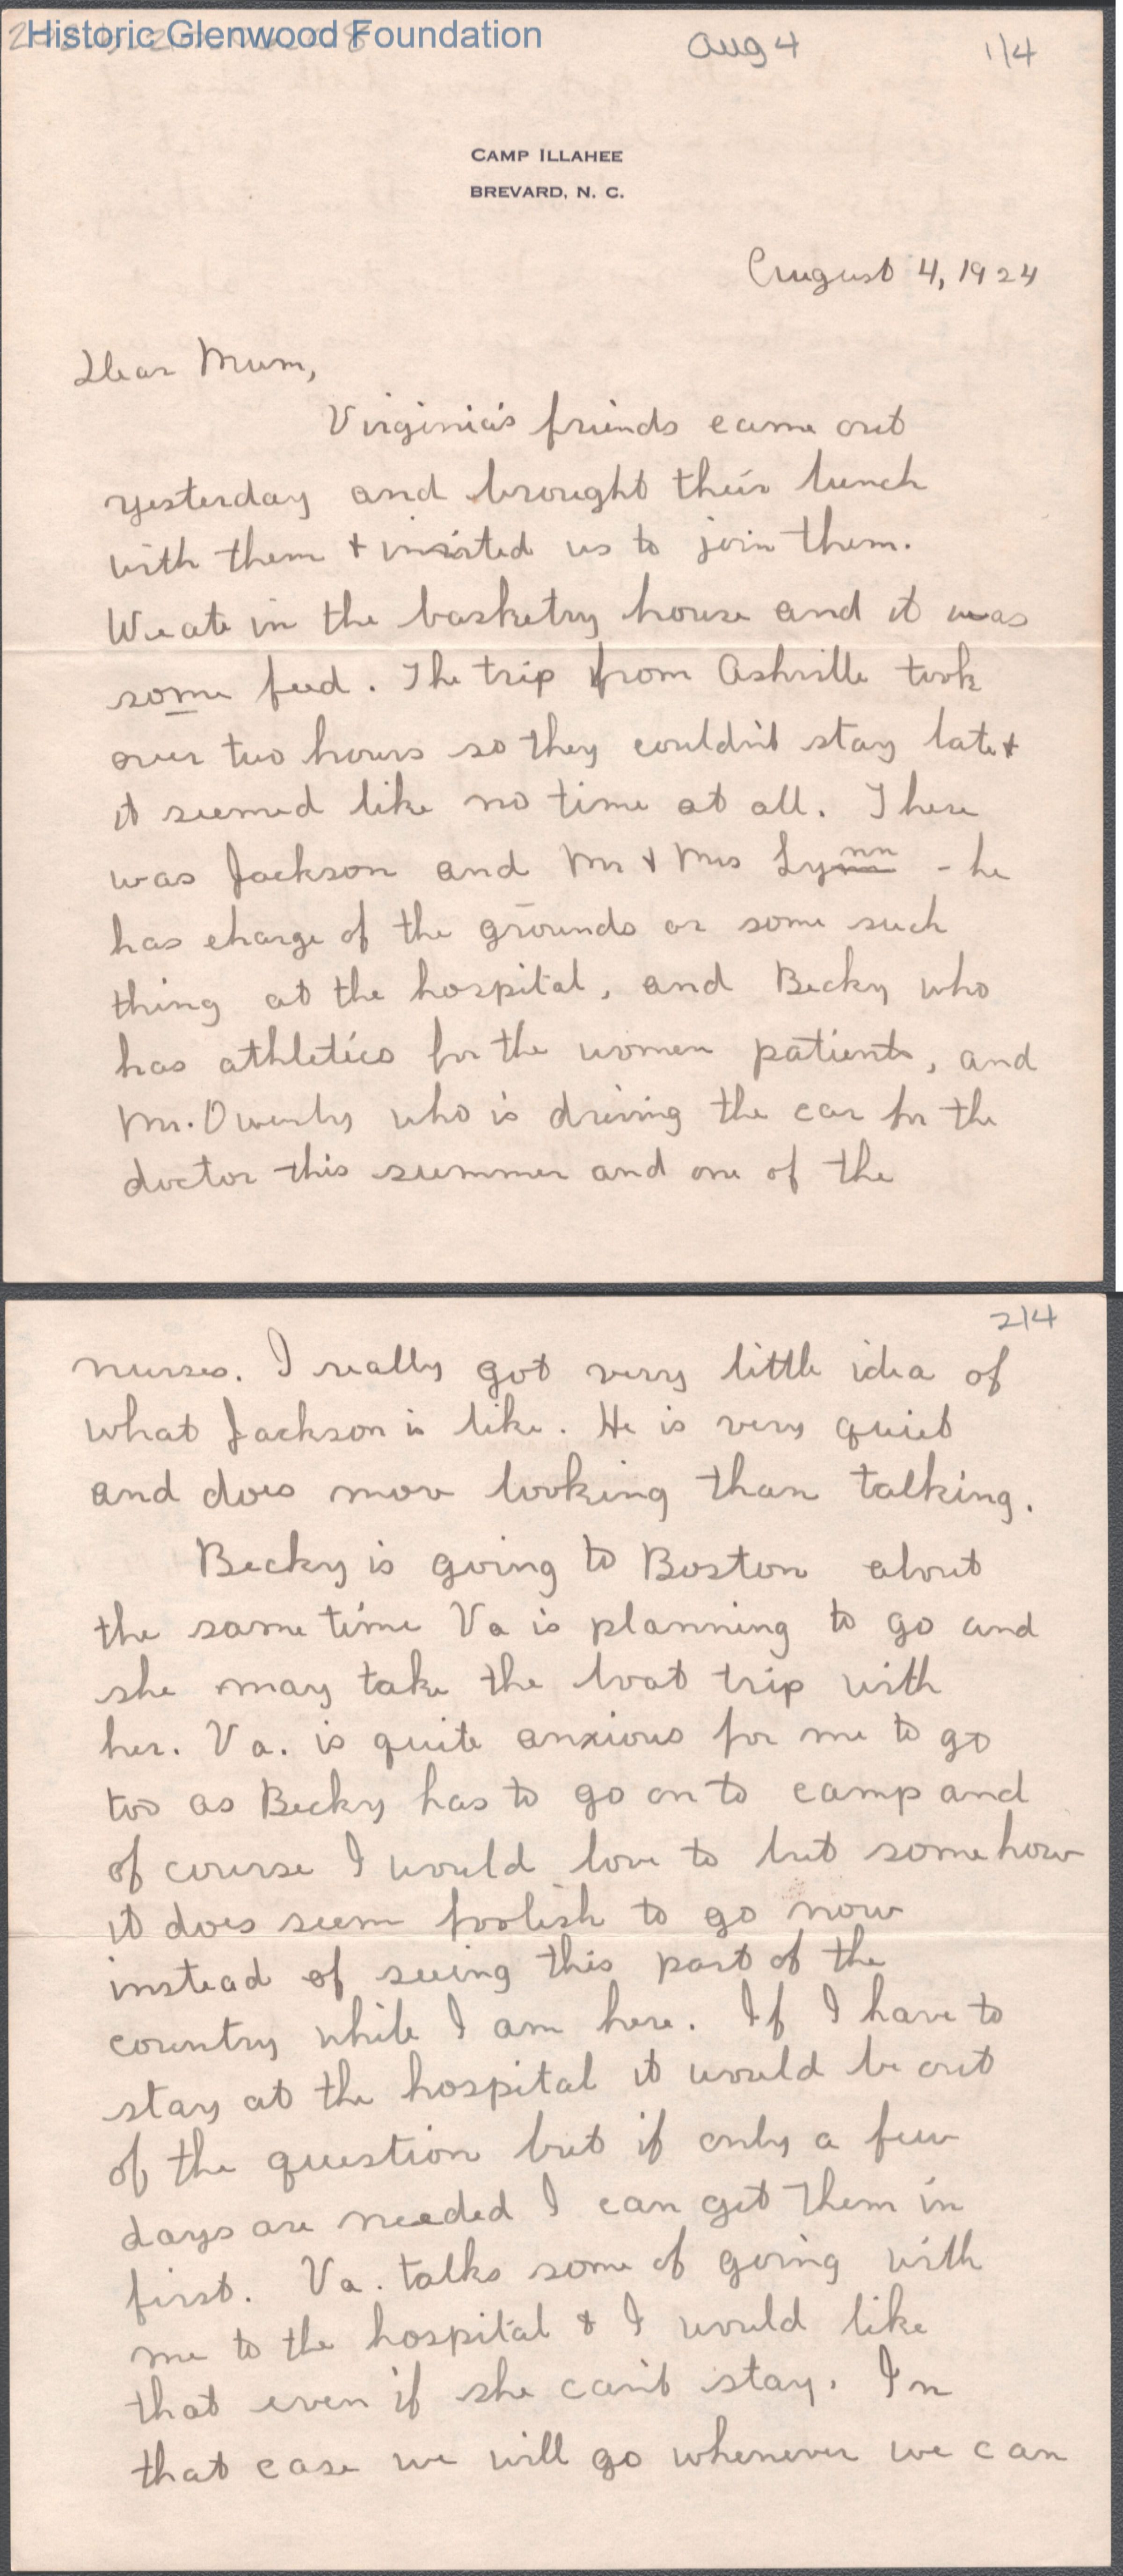 Historic Glenwood Foundation
Aug 4
1/4
CAMP ILLAHEE
BREVARD, N. C.
August 4, 1924
Dear Mum,
Virginia's friends came out
yesterday and brought their lunch
with them + invited us to join them.
We ate in the basketry house and it was
some feed. The trip from Ashville took
over two hours so they couldn't stay late +
it seemed like no time at all. There
was Jackson and Mr + Mrs Lynn - he
has charge of the grounds or some such
thing at the hospital, and Becky who
has athletics for the women patients, and
Mr. Owenby who is driving the car for the
doctor this summer and one of the
2/4
nurses. I really got very little idea of
what Jackson is like. He is very quiet
and does mor looking than talking.
Becky is going to Boston about
the same time Va is planning to go and
she may take the boat trip with
her. Va. is quite anxious for me to go
too as Becky has to go on to camp and
of course I would love to but somehow
it does seem foolish to go now
instead of seeing this part of the
country while I am here. If I have to
stay at the hospital it would be out
of the question but if only a few
days are needed I can get them in
first. Va. talks some of going with
me to the hospital & I would like
that even if she can't stay. In
that case we will go whenever we can